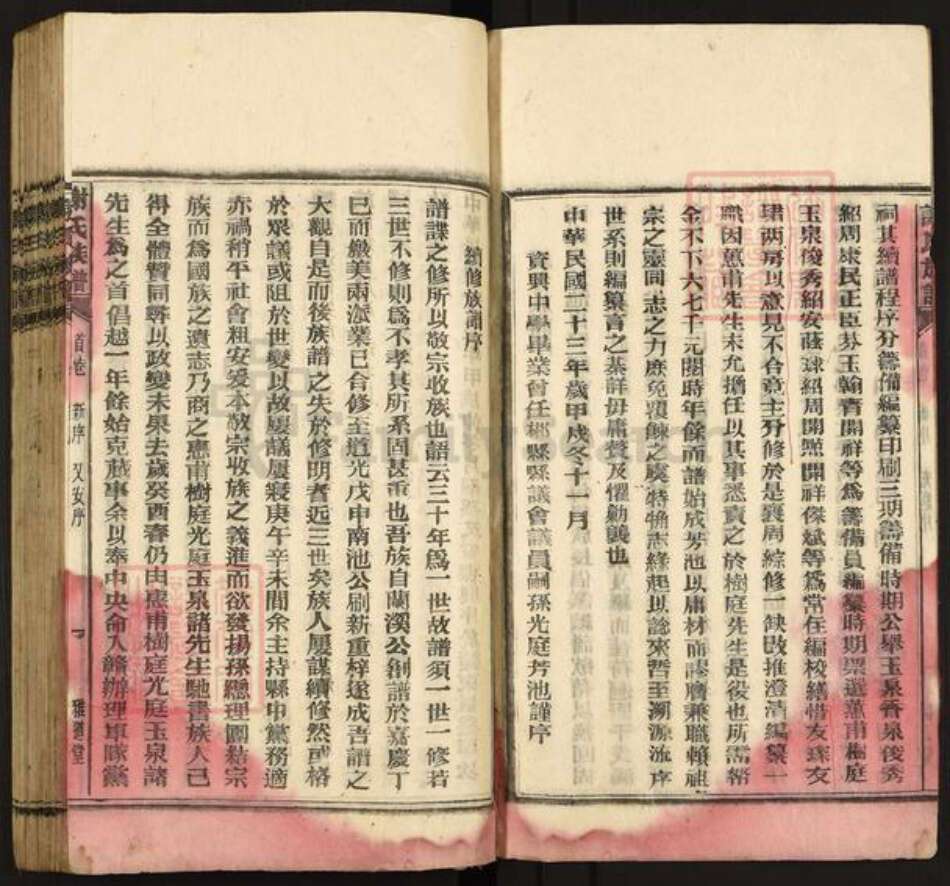 祠其續譜程序分籌備編纂印刷三期籌備時期公舉玉泉香泉俊秀
紹周康民正臣芬玉翰青開祥等為籌備員編纂時期票選蕙甫樹庭
玉泉俊秀紹安蔭球紹周開熙開祥傑斌等為常任編校繕惜友琜友
珒兩房以意見不合竟主分修於是襄周綜修一缺改推澄清編纂一
職因蕙甫先生未允擔任以其事悉責之於樹庭先生是役也所需幣
金不下六七千元閱時年餘而譜始成芳池以庸材而謬膺兼職賴祖
宗之靈同志之力庶免覆餗之虞特悔志緣起以諗來哲至溯源流序
世系則編纂言之綦詳毋庸贅及懼勦襲也
中華民國二十三年歲甲戌冬十一月
資興中學畢業曾任郴縣縣議會議員嗣孫光庭芳池謹序
續修族譜序
譜諜之修所以敬宗收族也語云三十年為一世故譜須一世一修若
三世不修則為不孝其所系固甚重也吾族自蘭溪公創譜於嘉慶丁
巳而繳美兩派業已合修至道光戊申南池公刷新重梓遂成吉譜之
大觀自是而後族譜之失於修明者近三世矣族人屢謀續修然或格
於眾議或阻於世變以故屢議屢寢庚午辛未間余主持縣中黨務適
赤禍稍平社會粗安爰本敬宗收族之義進而欲發揚孫總理團結宗
族而為國族之遺志乃商之惠甫樹庭光庭玉泉諸先生馳書族人已
得全體贊同尋以政變未果去歲癸酉春仍由惠甫樹庭光庭玉泉諸
先生為之首倡越一年餘始克蕆事余以奉中央命入贛辦理軍隊黨
謝氏族譜
首卷
新序 又安序
雅道堂